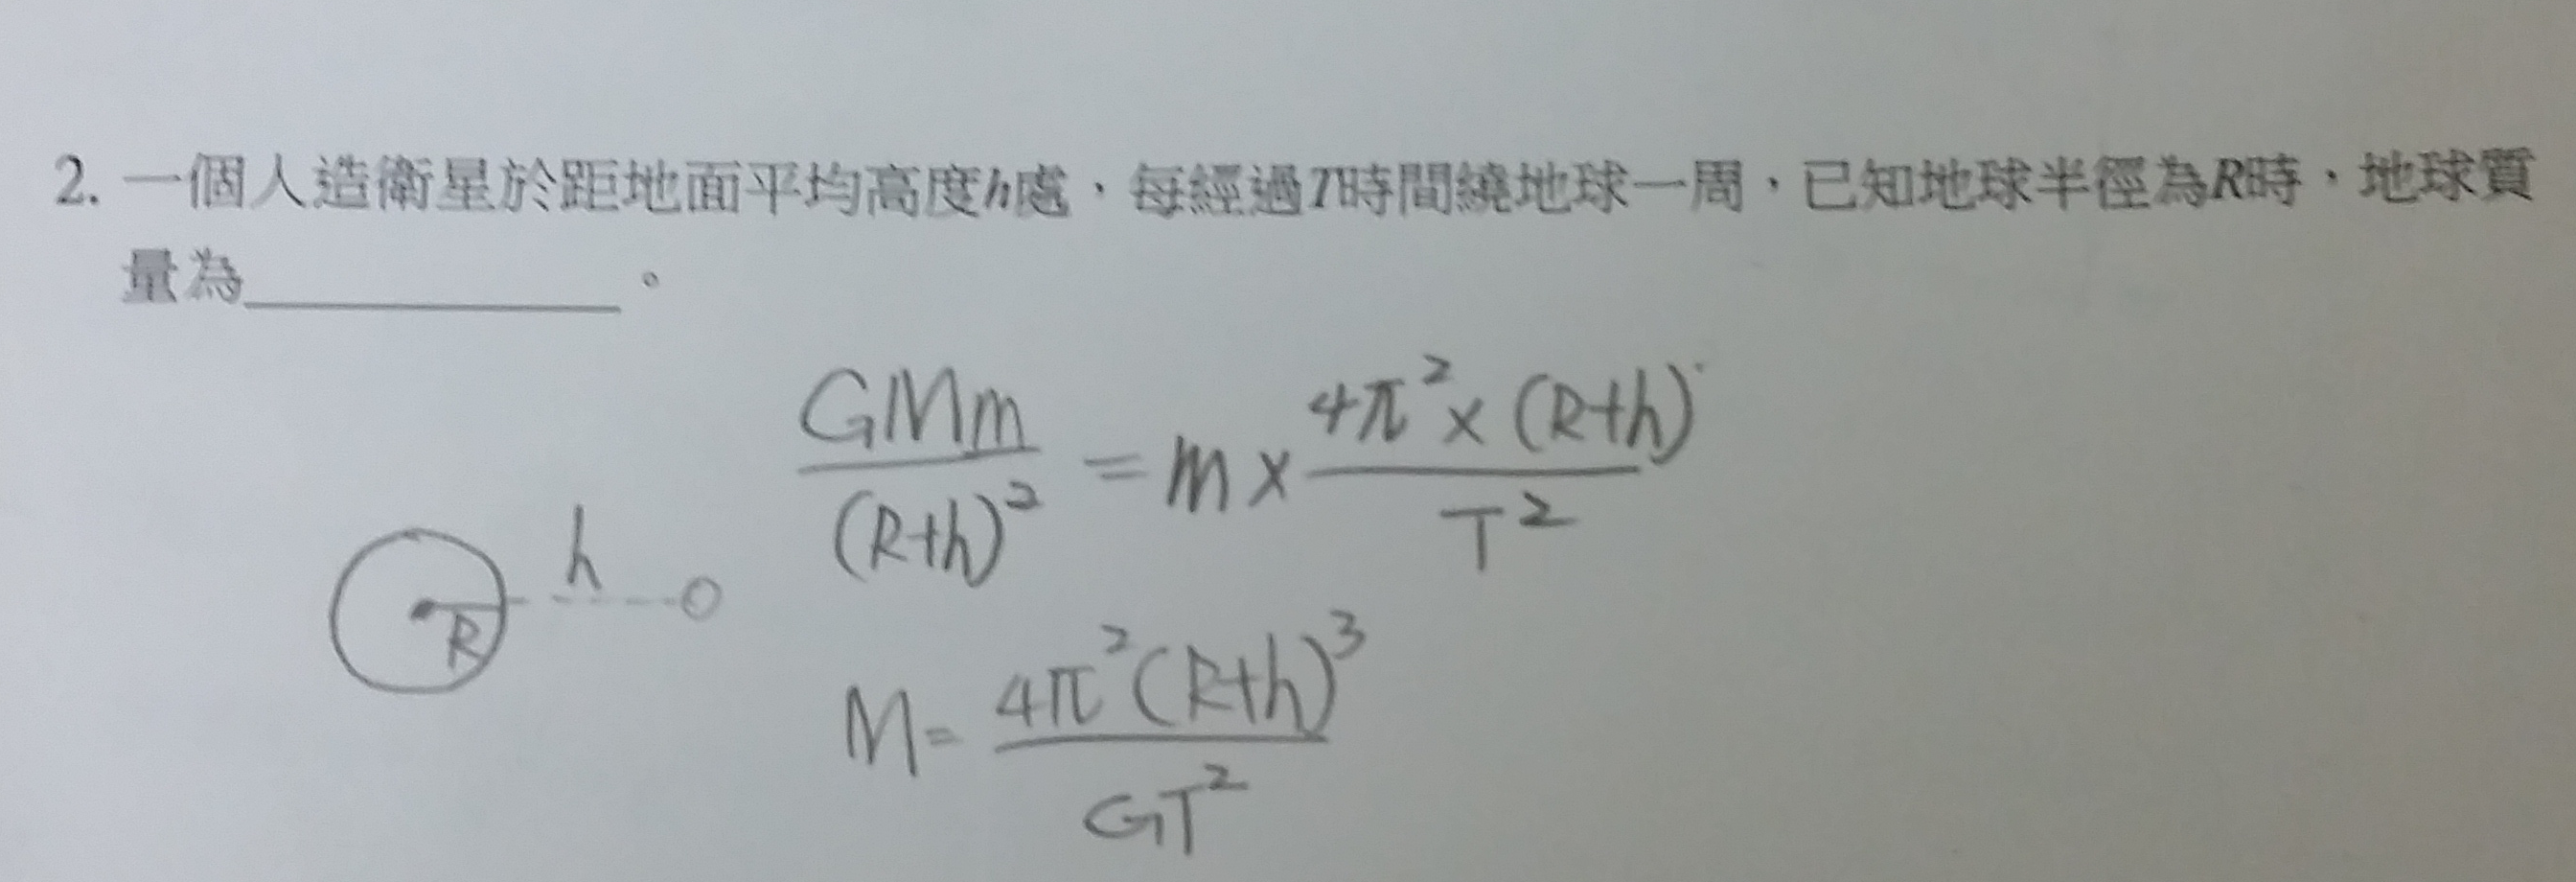 2. 一個人造衛星於距地面平均高度h處，每經過T時間繞地球一周，已知地球半徑為R時，地球質
量為__________。
GMm/(R+h)² = m × 4π² × (R+h)/T²
h
R
M = 4π²(R+h)³/GT²